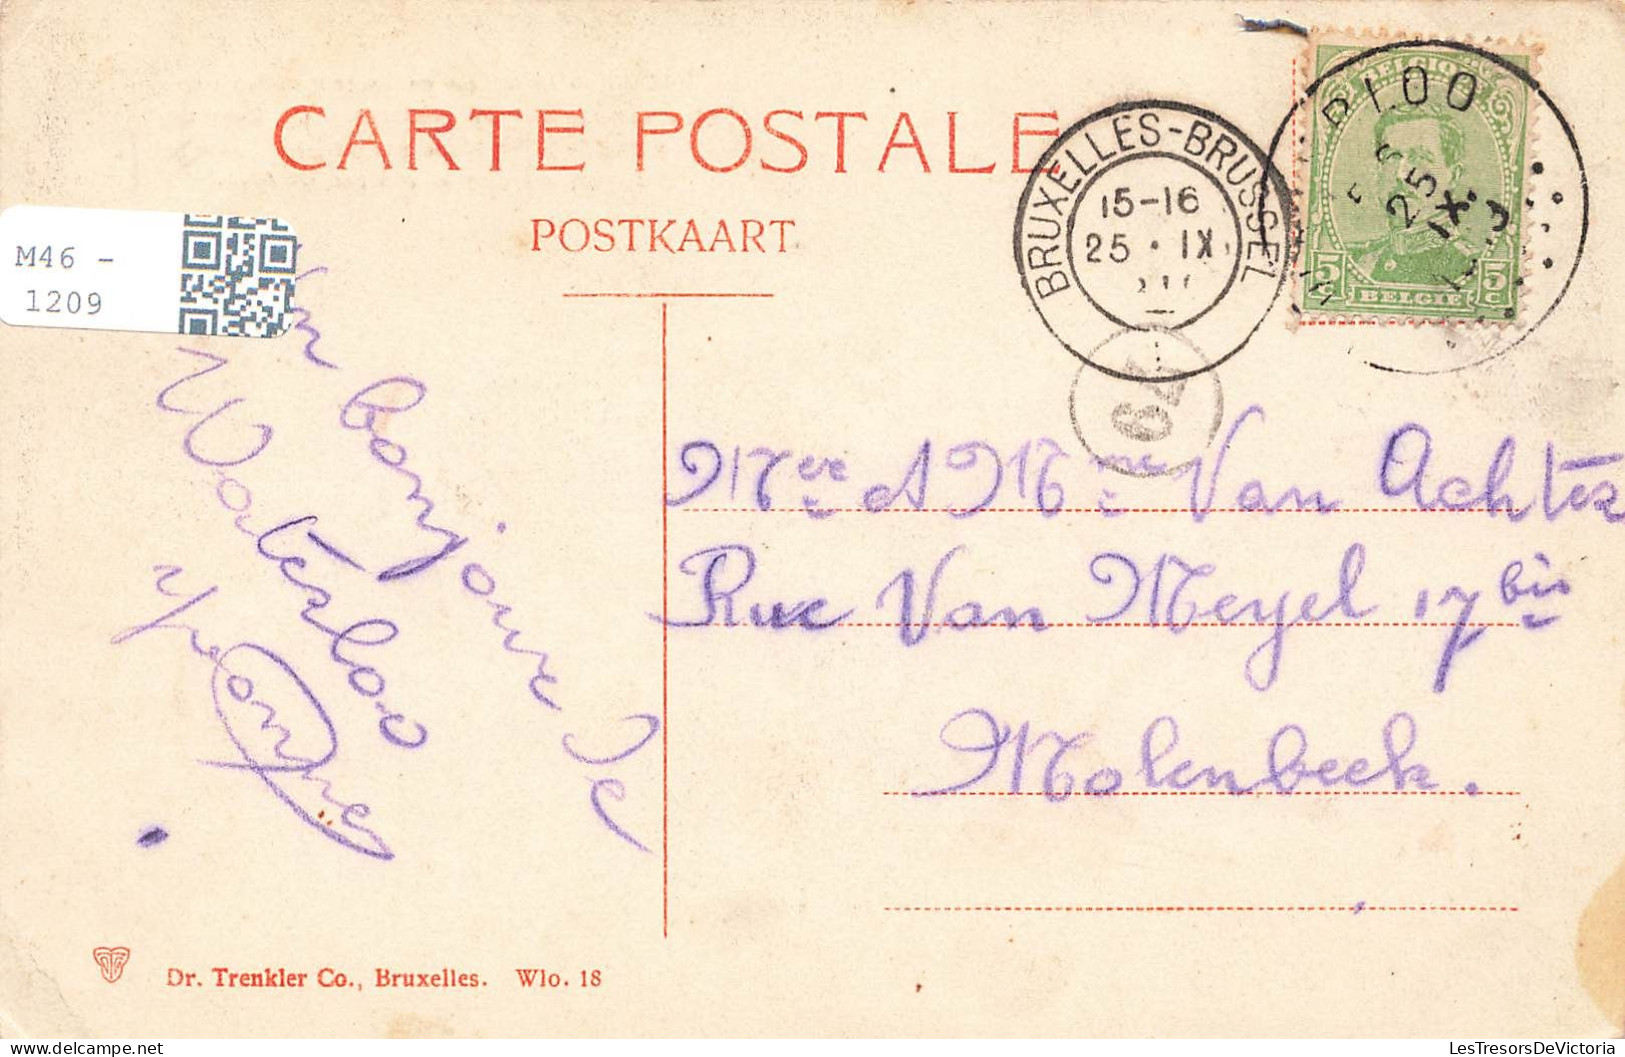 CARTE POSTALE
POSTKAART
M46 -
1209
BRUXELLES-BRUSSEL
15-16
25 · IX
BELGIQUE
5c 5c
BELGIE
25
IX
bonjour de
Waterloo
Yvonne
Mer et Mme Van Achter
Rue Van Meyel 17 bis
Molenbeek.
Dr. Trenkler Co., Bruxelles. Wlo. 18
LesTresorsDeVictoria